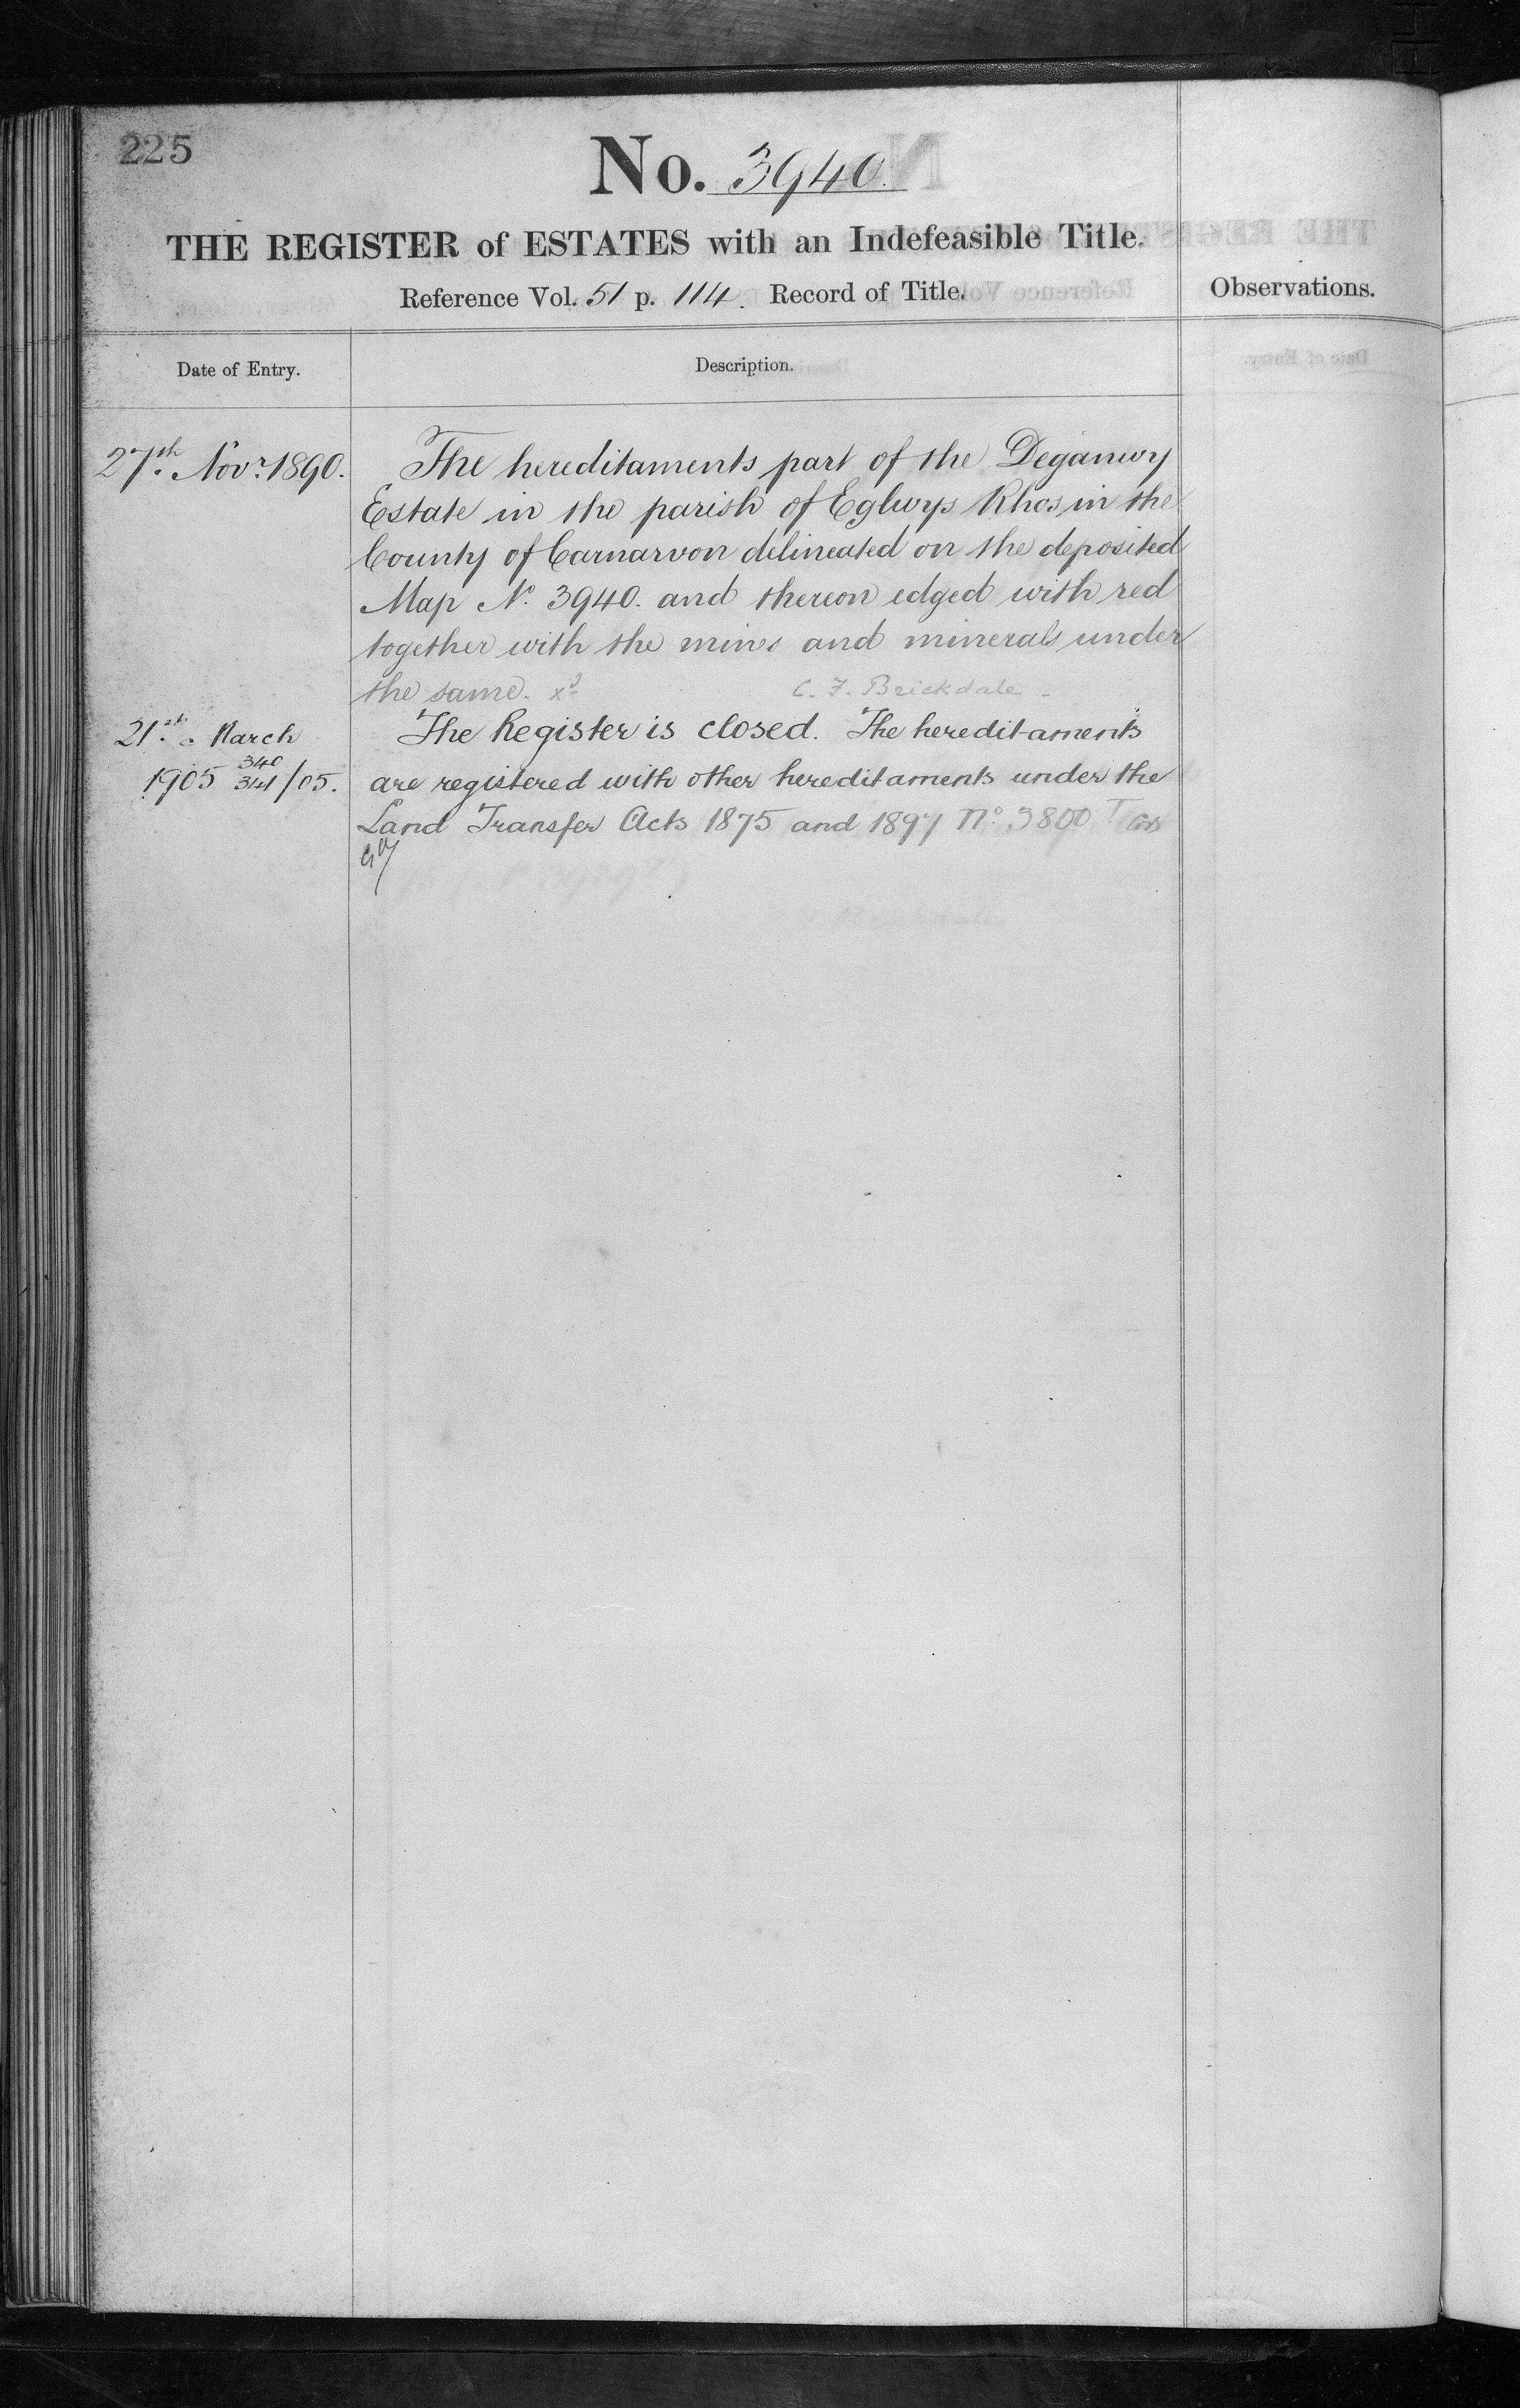 225
No. 3940.
THE REGISTER of ESTATES with an Indefeasible Title.
Reference Vol. 51 p. 114. Record of Title.
Observations.
Date of Entry.
Description.
27th Novr 1890.
The hereditaments part of the Deganwy
Estate in the parish of Eglwys Rhos in the
County of Carnarvon delineated on the deposited
Map No. 3940. and thereon edged with red
together with the mines and minerals under
the same. xd
C. F. Brickdale
21st March
1905 340 341/05.
The Register is closed. The hereditaments
are registered with other hereditaments under the
Land Transfer Acts 1875 and 1897 No 3800